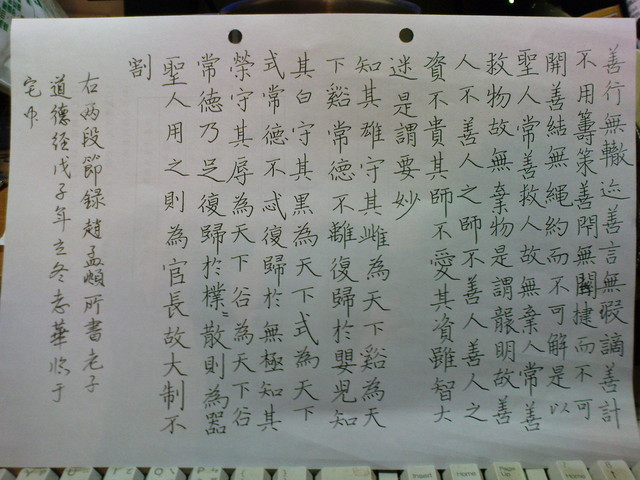 善行無轍迹善言無瑕謫善計
不用籌策善閉無關揵而不可
開善結無繩約而不可解是以
聖人常善救人故無棄人常善
救物故無棄物是謂襲明故善
人不善人之師不善人善人之
資不貴其師不愛其資雖智大
迷是謂要妙
知其雄守其雌為天下谿為天
下谿常德不離復歸於嬰兒知
其白守其黑為天下式為天下
式常德不忒復歸於無極知其
榮守其辱為天下谷為天下谷
常德乃足復歸於樸〻散則為器
聖人用之則為官長故大制不
割
右兩段節錄趙孟頫所書老子
道德經戊子年立冬志華臨于
宅中
Insert
Home
Page Up
Home